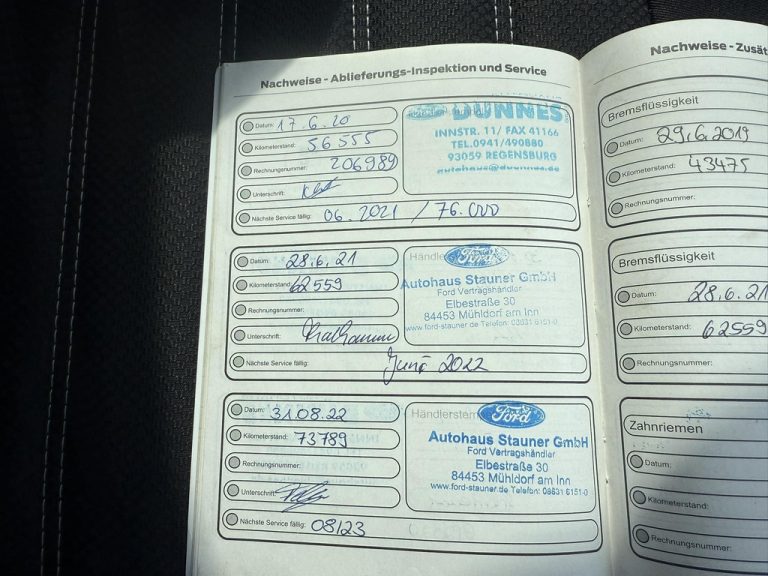 Nachweise - Ablieferungs-Inspektion und Service
Datum: 17.6.20
Kilometerstand: 56555
Rechnungsnummer: 206989
Unterschrift:
Nächste Service fällig: 06.2021 / 76.000
DÜNNES
INNSTR. 11/ FAX 41166
TEL.0941/490880
93059 REGENSBURG
autohaus@duennes.de
Datum: 28.6.21
Kilometerstand: 62559
Rechnungsnummer:
Unterschrift:
Nächste Service fällig: Juni 2022
Ford
Autohaus Stauner GmbH
Ford Vertragshändler
Elbestraße 30
84453 Mühldorf am Inn
www.ford-stauner.de Telefon: 08631 6151-0
Datum: 31.08.22
Kilometerstand: 73789
Rechnungsnummer:
Unterschrift:
Nächste Service fällig: 08/23
Händlerstem
Ford
Autohaus Stauner GmbH
Ford Vertragshändler
Elbestraße 30
84453 Mühldorf am Inn
www.ford-stauner.de Telefon: 08631 6151-0
Nachweise - Zusät
Bremsflüssigkeit
Datum: 29.6.2019
Kilometerstand: 43475
Rechnungsnummer:
Bremsflüssigkeit
Datum: 28.6.21
Kilometerstand: 62559
Rechnungsnummer:
Zahnriemen
Datum:
Kilometerstand:
Rechnungsnummer: